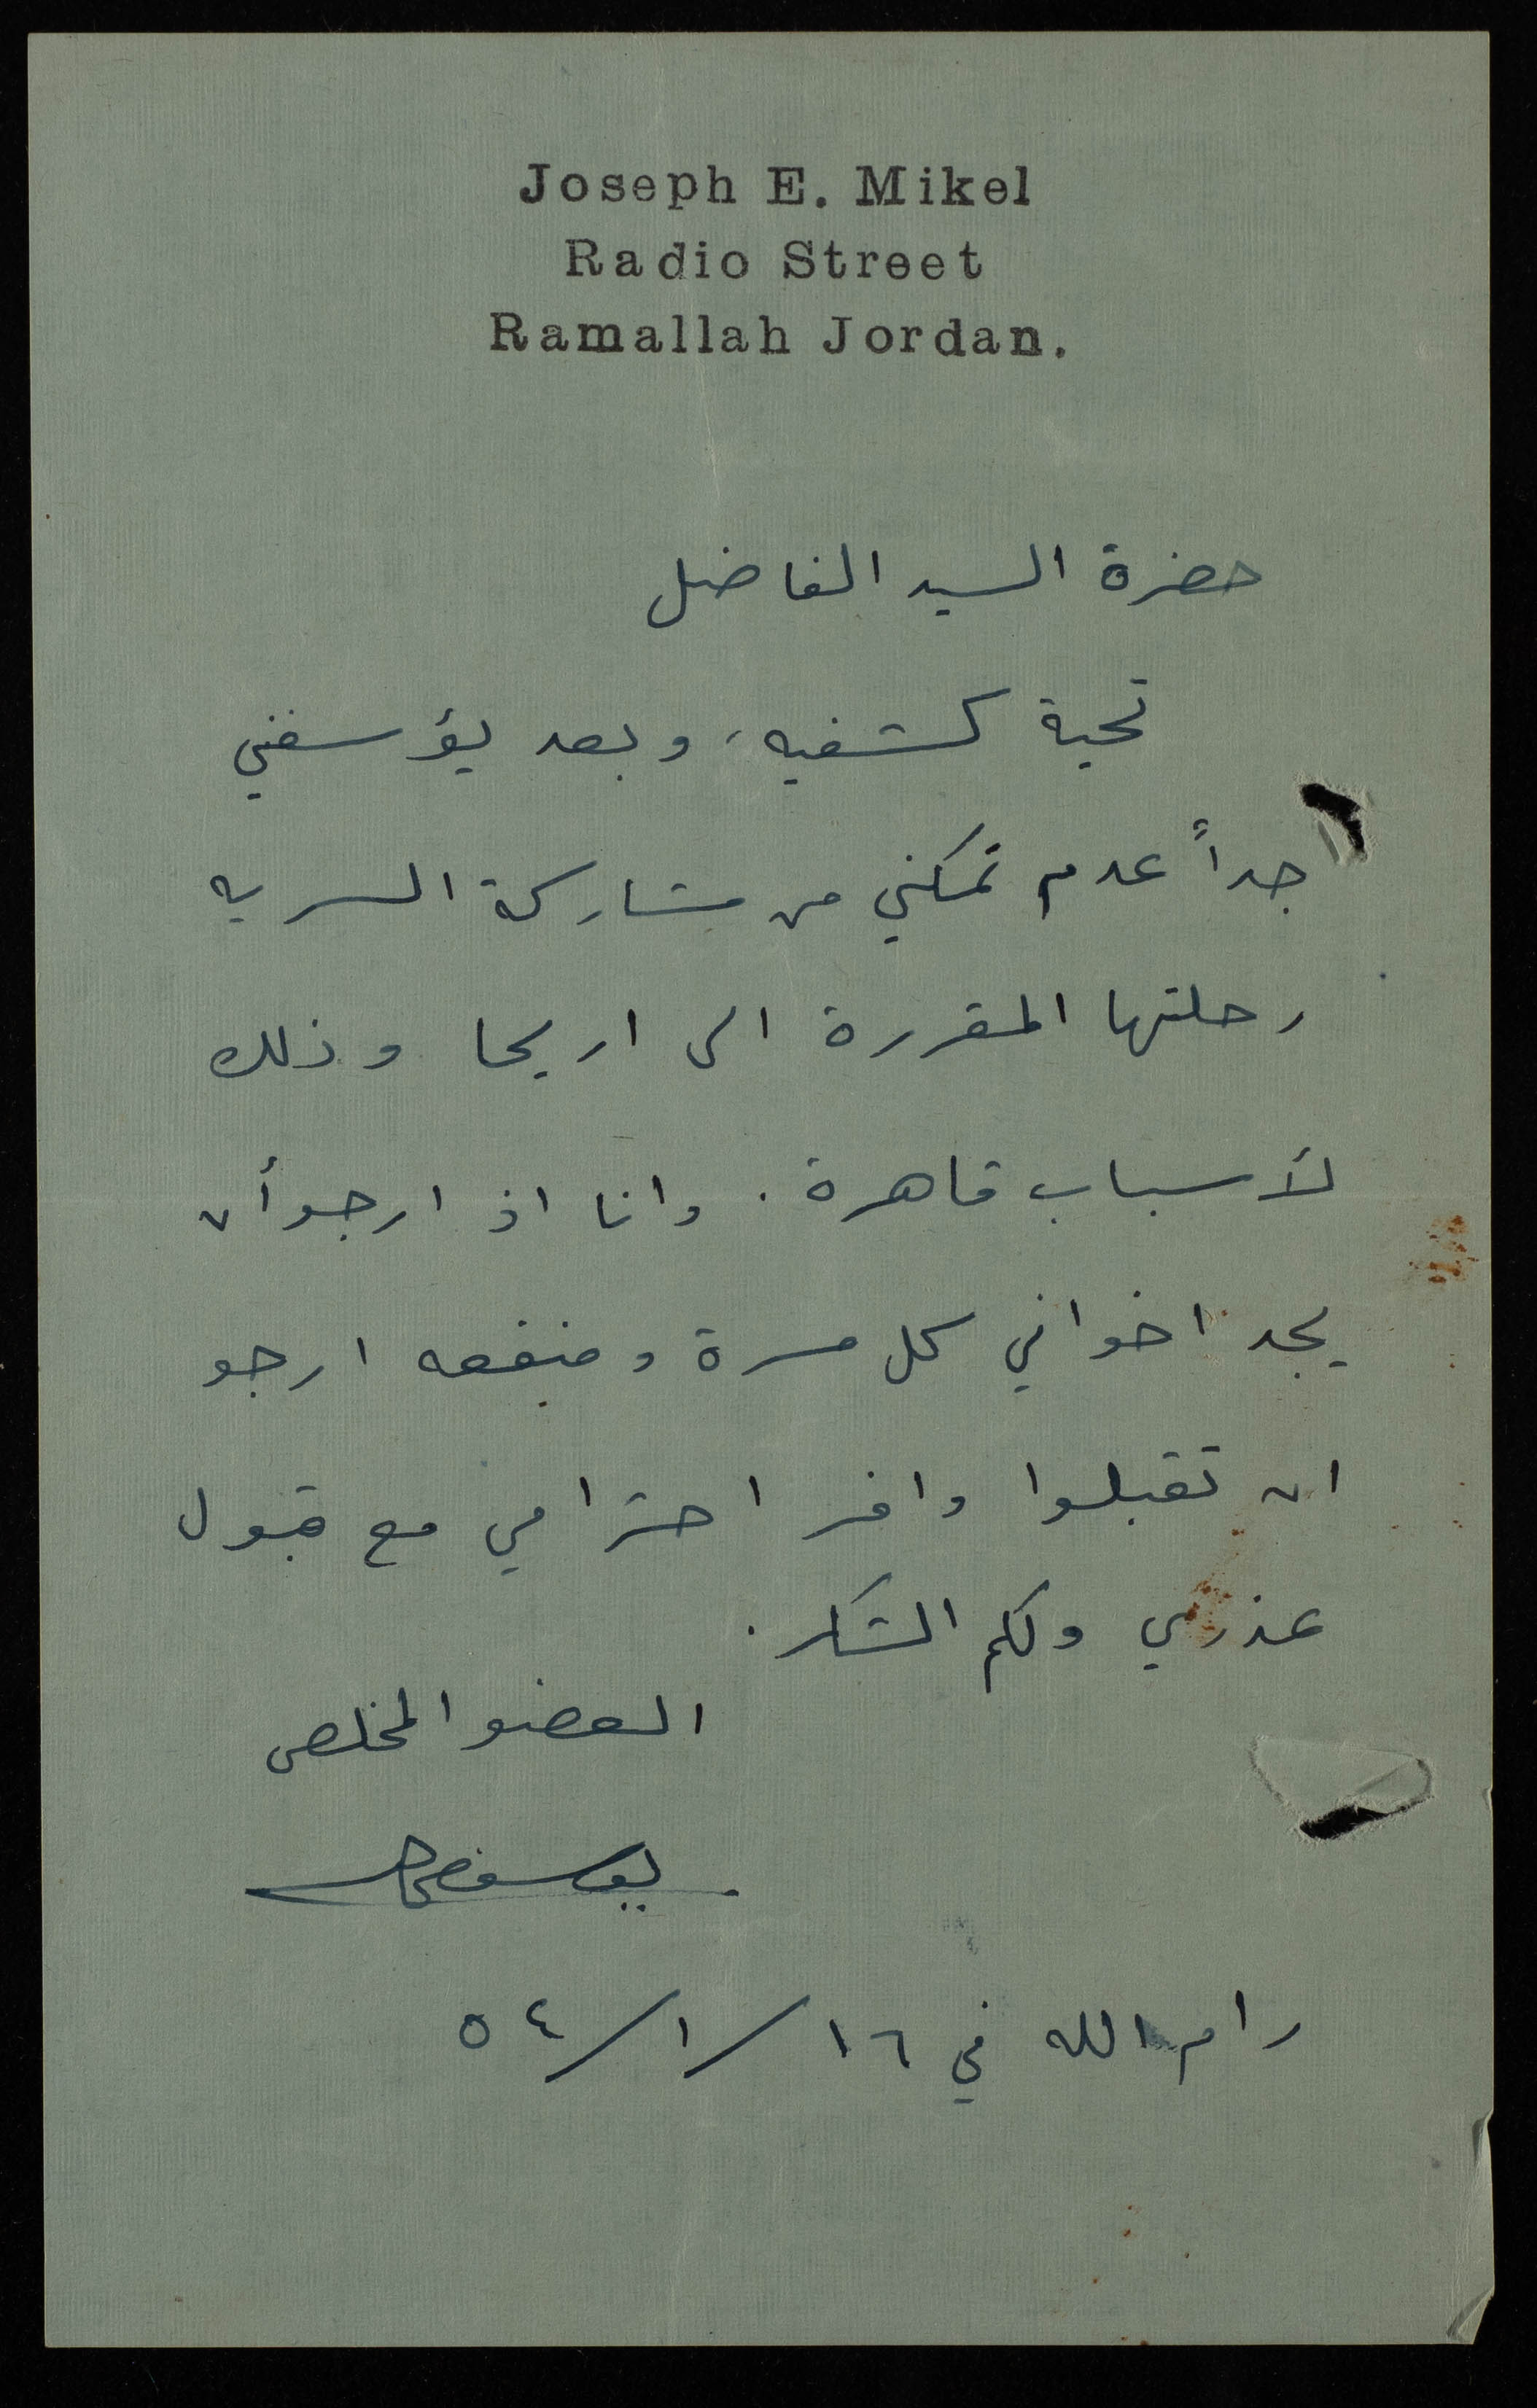 Joseph E. Mikel
Radio Street
Ramallah Jordan.
حضرة السيد الفاضل
تحية كشفيه، وبعد يؤسفني
جداً عدم تمكني من مشاركة السريه
رحلتها المقررة الى اريحا وذلك
لأسباب قاهرة. وانا اذ ارجو أن
يجد اخواني كل مسرة ومنفعه ارجو
ان تقبلوا وافر احترامي مع قبول
عذري ولكم الشكر.
العضو المخلص
يوسف
رام الله في ١٦/١/٥٤